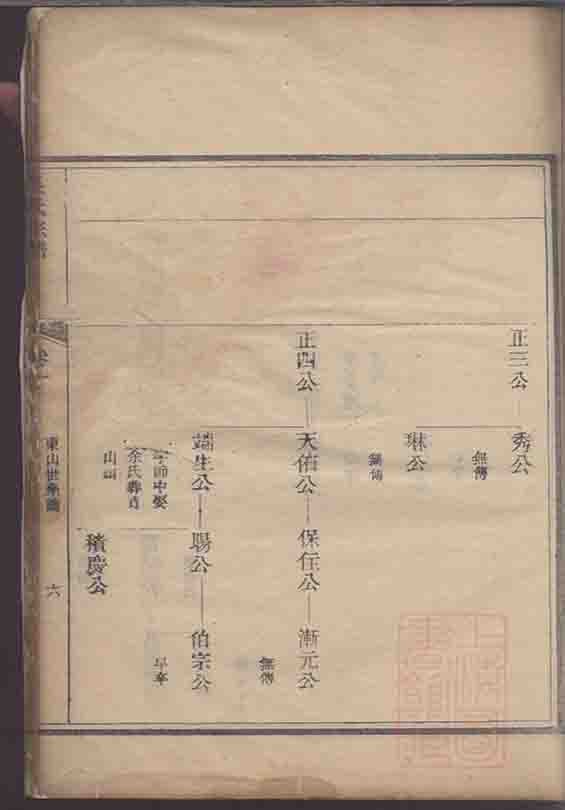 正三公
秀公
無傳
琳公
無傳
正四公
天佑公
保任公
漸元公
無傳
端生公
字師中娶
余氏葬
山
賜公
伯宗公
早卒
積慶公
卷
東山世系圖
六